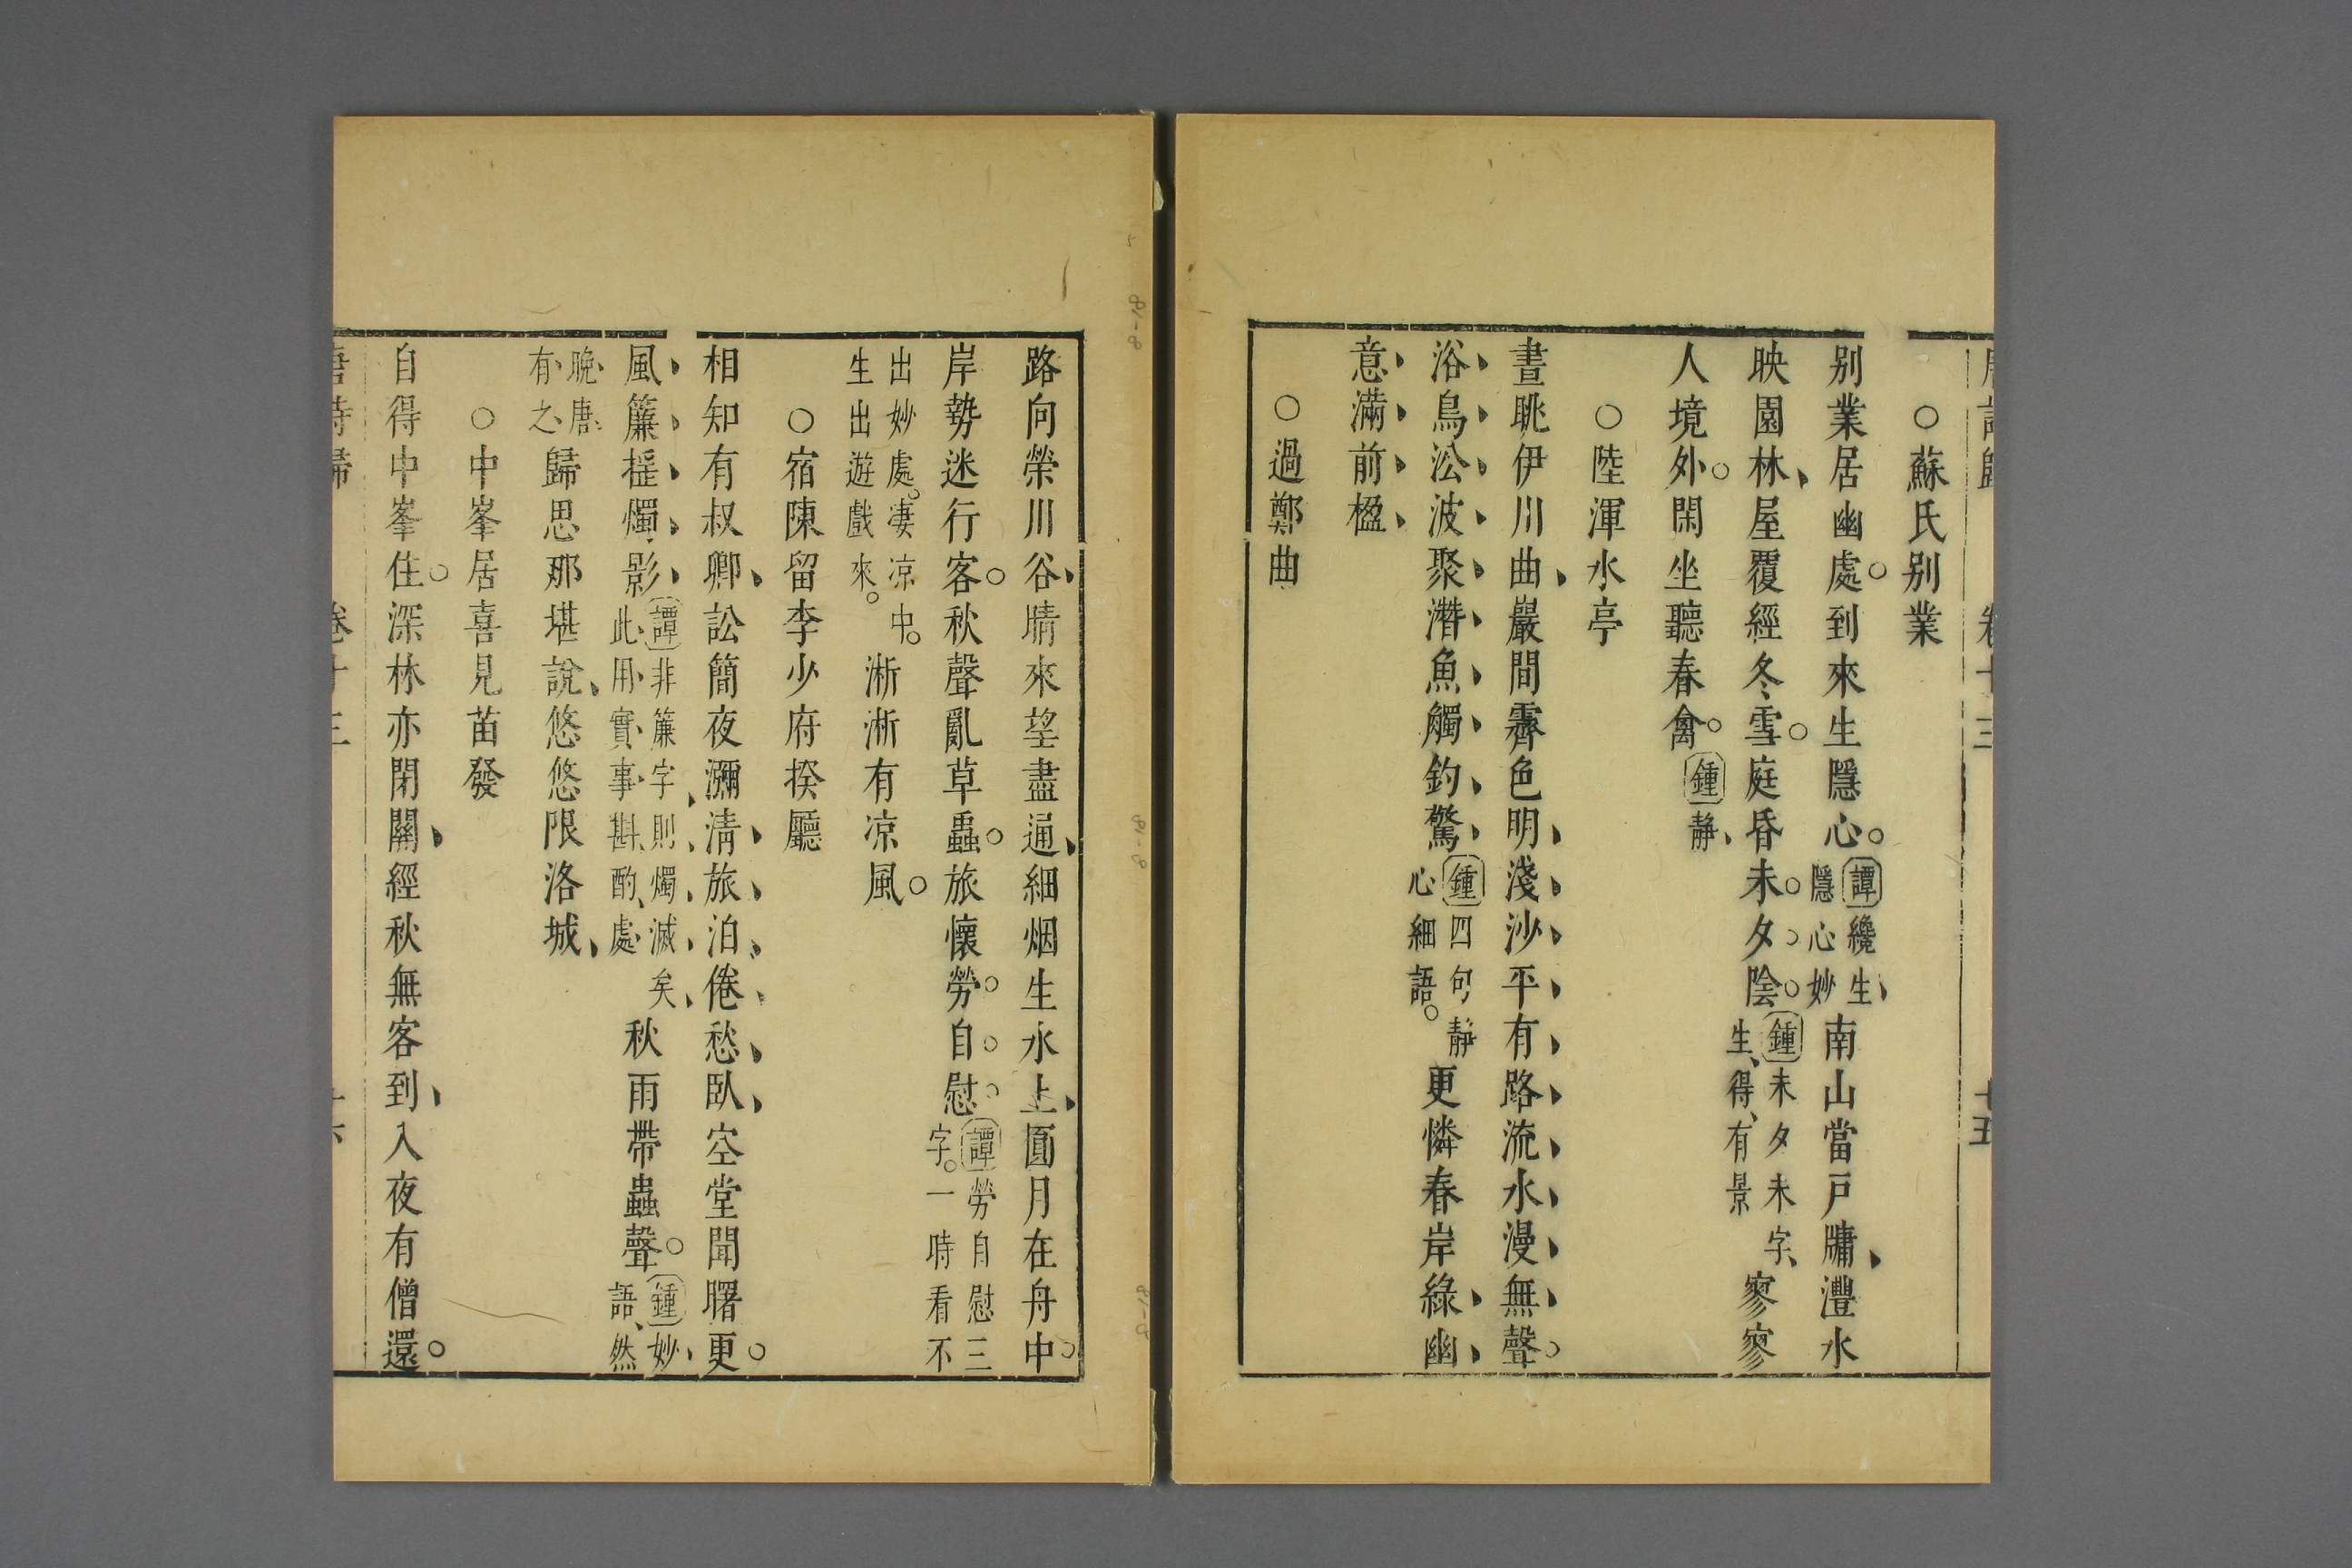 ○蘇氏别業
别業居幽處到來生隱心譚纔生隱心妙南山當戸牗灃水
映園林屋覆經冬雪庭昏未夕陰鍾未夕未字生得有景寥寥
人境外閑坐聽春禽鍾静
○陸渾水亭
晝眺伊川曲巖間霽色明淺沙平有路流水漫無聲
浴鳥沿波聚潛魚觸釣驚鍾四句静心細語更憐春岸綠幽
意滿前楹
○過鄭曲
路向榮川谷晴來望盡通細烟生水上圓月在舟中
岸勢迷行客秋聲亂草蟲旅懷勞自慰譚勞自慰三字一時看不
出妙處凄凉中生出遊戲來淅淅有凉風
○宿陳留李少府揆廳
相知有叔卿訟簡夜瀰清旅泊倦愁臥空堂聞曙更
風簾揺燭影譚非簾字則燭滅矣此用實事斟酌處秋雨帶蟲聲鍾妙語然
晩唐有之歸思那堪說悠悠限洛城
○中峯居喜見苗發
自得中峯住深林亦閉關經秋無客到入夜有僧還
唐詩歸 卷十三